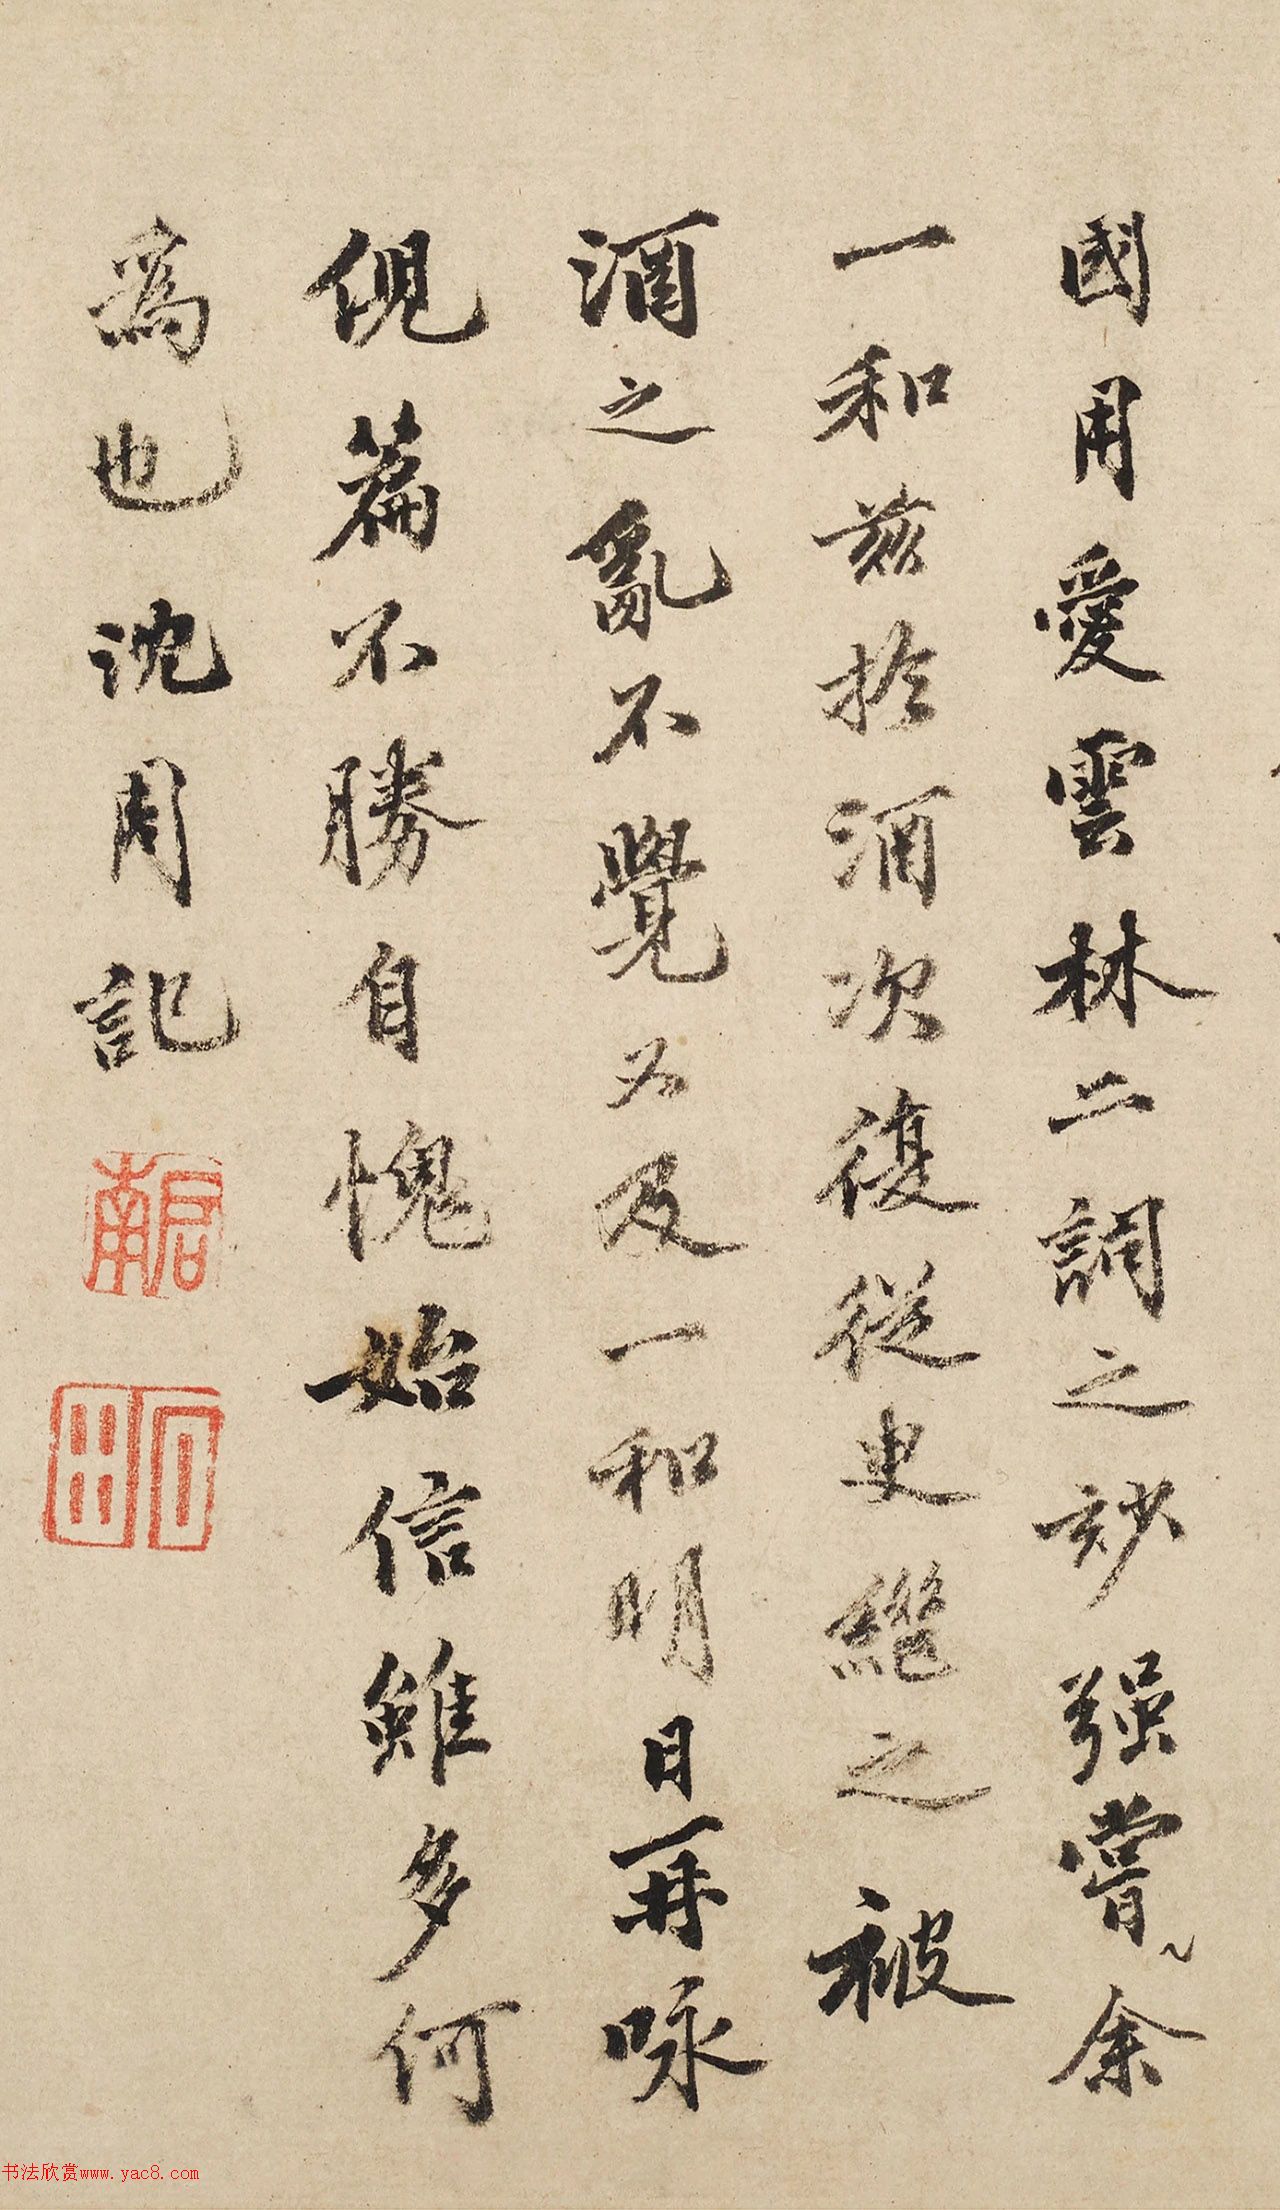 國用愛雲林二詞之妙强嘗〻余
一和茲於酒次復從臾繼之被
酒之亂不覺又及一和明日再咏
倪篇不勝自愧始信雖多何
為也沈周記
啟南
石田
书法欣赏www.yac8.com